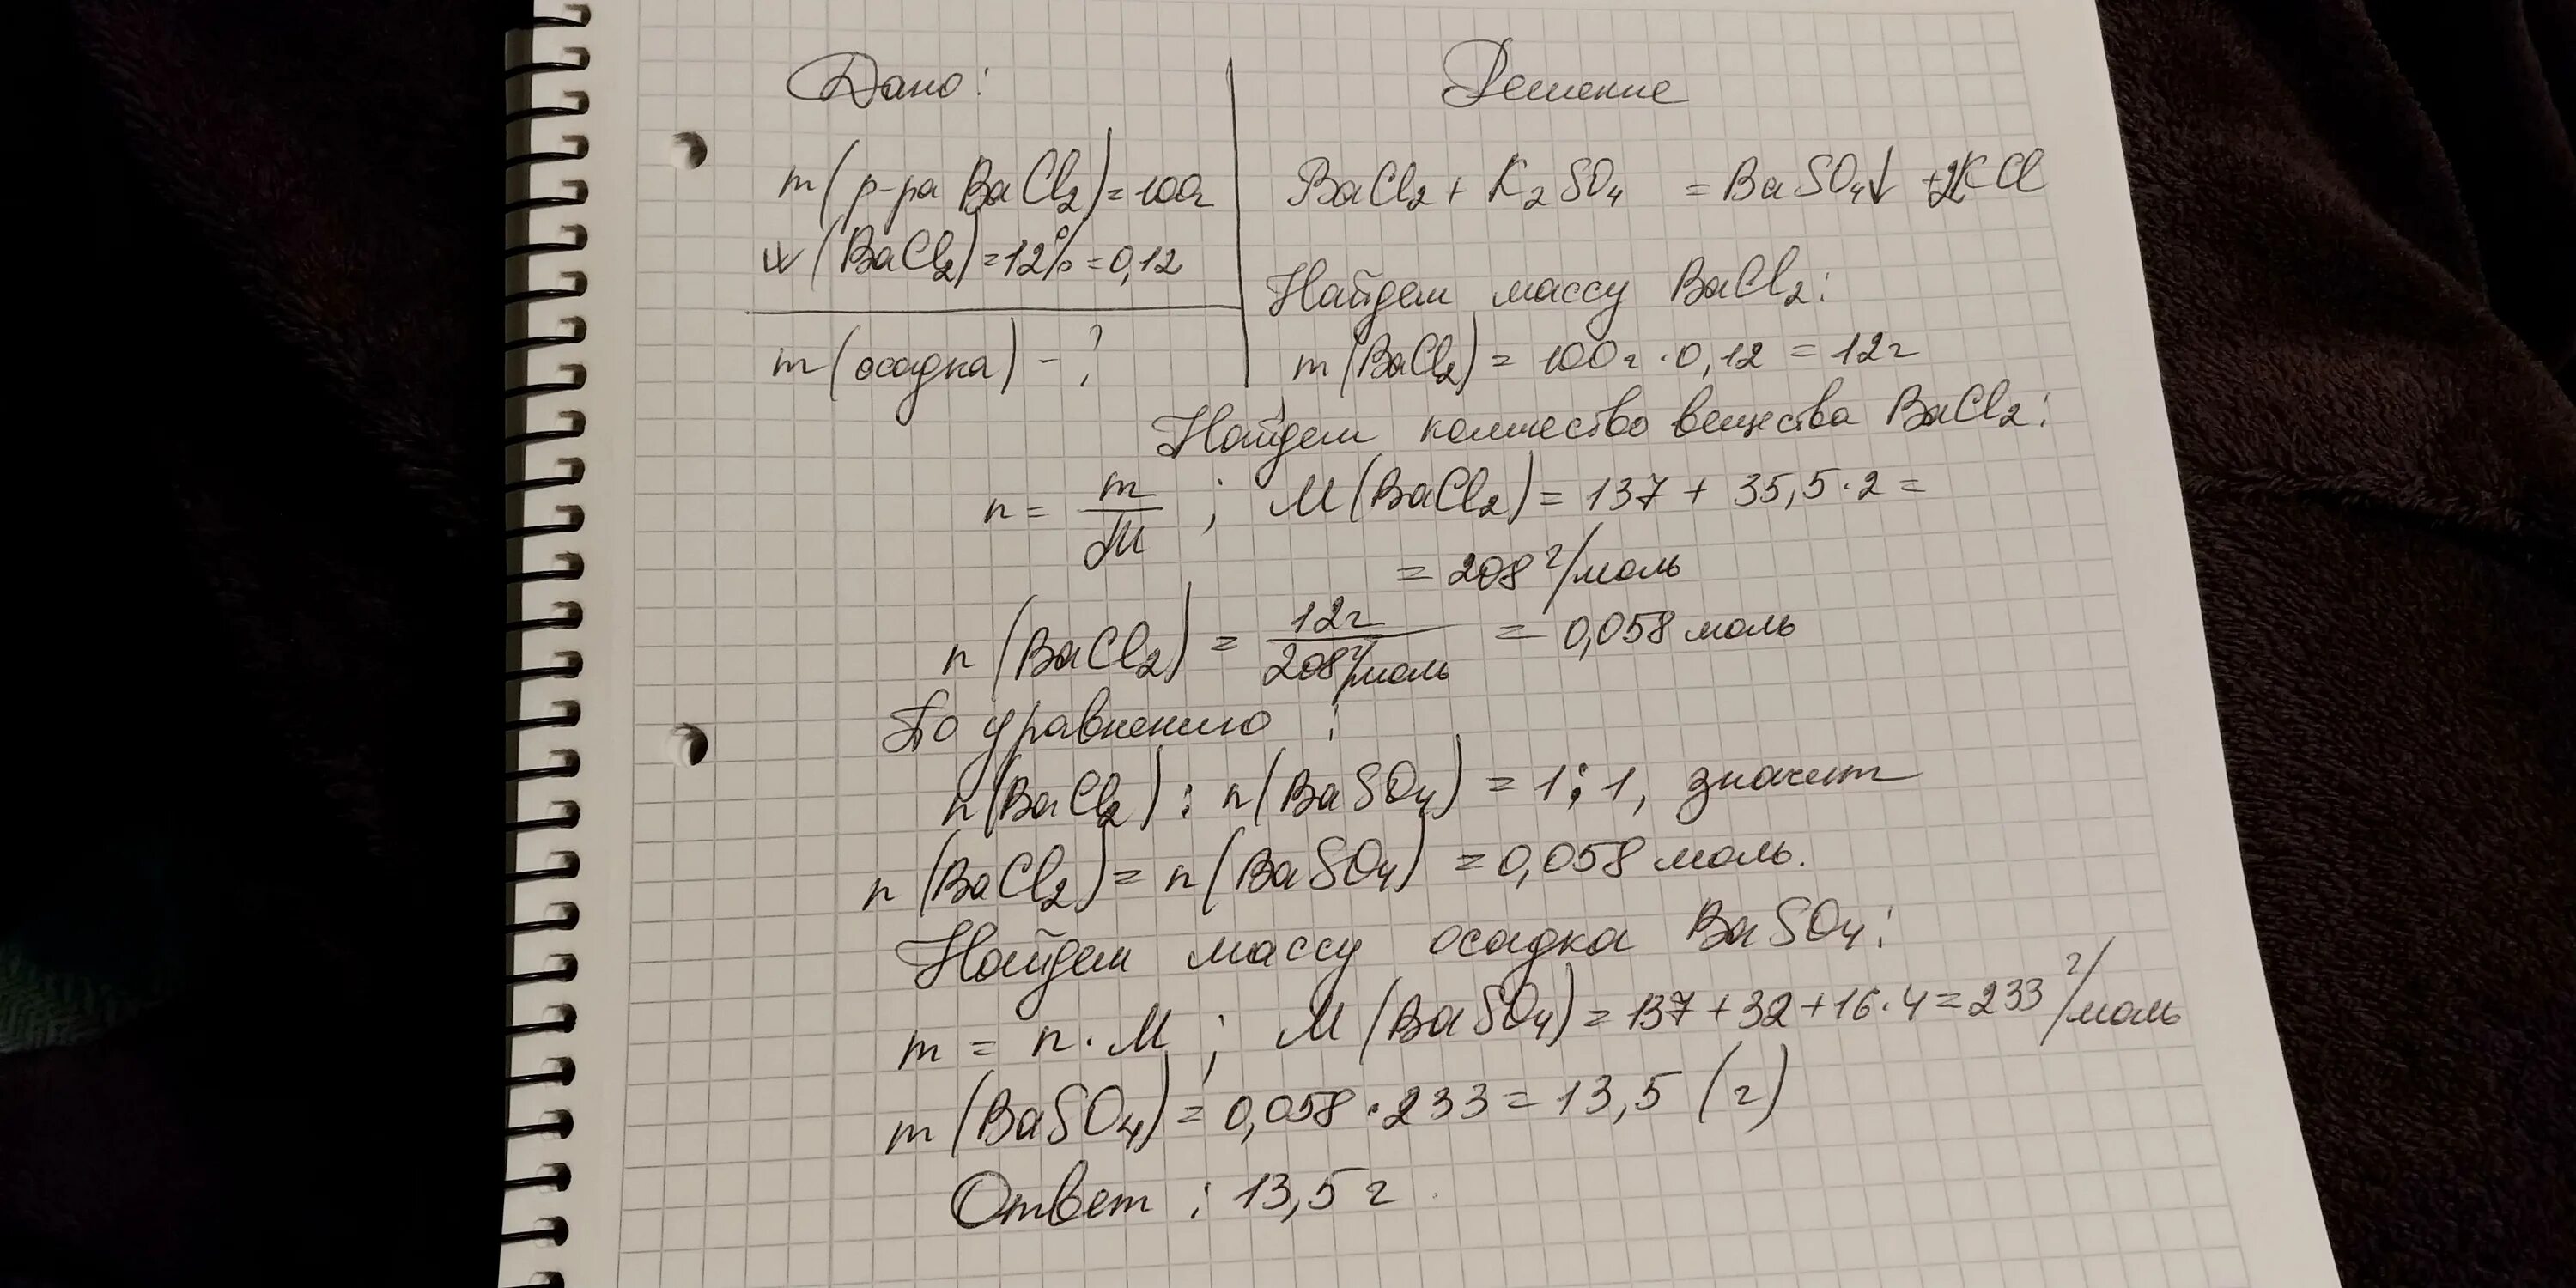 Дано:
m(р-ра BaCl₂)=100г
w(BaCl₂)=12%=0,12
m(осадка) - ?
Решение
BaCl₂ + K₂SO₄ = BaSO₄↓ + 2KCl
Найдем массу BaCl₂:
m(BaCl₂) = 100г · 0,12 = 12г
Найдем количество вещества BaCl₂:
n = m/M ; M(BaCl₂) = 137 + 35,5·2 =
= 208 г/моль
n(BaCl₂) = 12г/208г/моль = 0,058 моль
По уравнению :
n(BaCl₂) : n(BaSO₄) = 1:1, значит
n(BaCl₂) = n(BaSO₄) = 0,058 моль.
Найдем массу осадка BaSO₄:
m = n·M ; M(BaSO₄) = 137 + 32 + 16·4 = 233 г/моль
m(BaSO₄) = 0,058 · 233 = 13,5 (г)
Ответ : 13,5 г